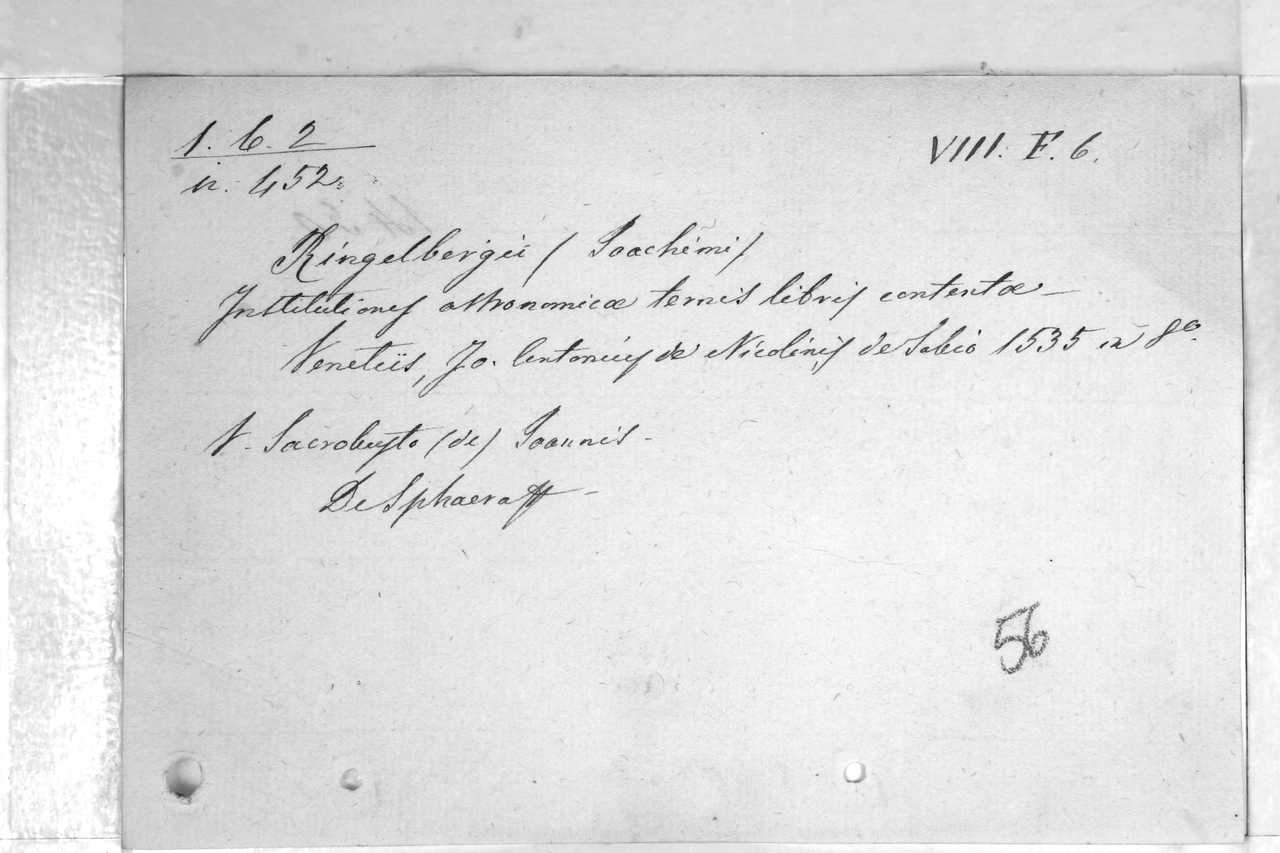 1. C. 2
VIII. F. 6.
n. 452.
Ringelbergii (Joachimi)
Institutiones astronomicæ ternis libris contentæ –
Venetiis, Jo. Antonius de Nicolinis de Sabio 1535 in 8º.
V. Sacrobusto (de) Joannis –
De Sphaera
56